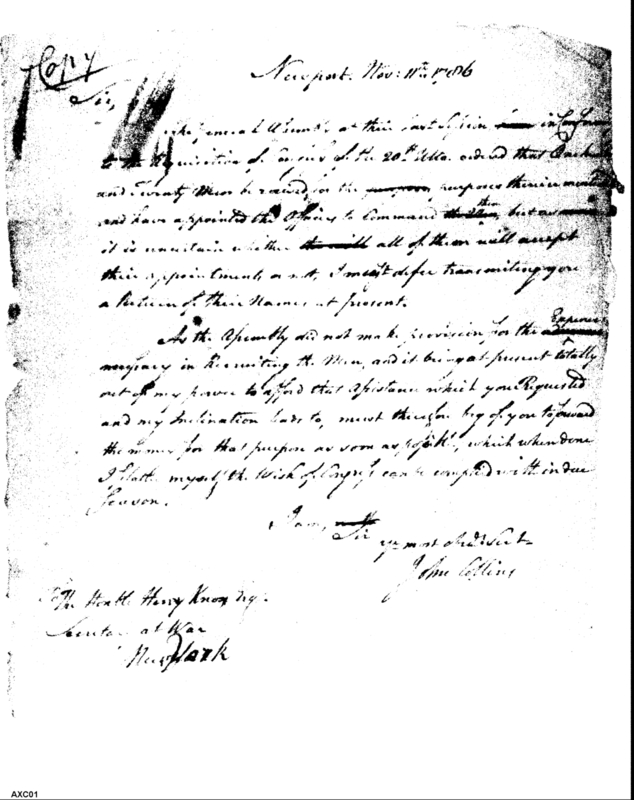 Copy
Newport Nov: 11th 1786
Sir,
The General Assembly at their last Session in Conformity
to the Requisition of Congress of the 20th Ulto. ordered that One hundred
and Twenty Men be raised, for the purposes therein mentioned
and have appointed the Officers to Command them, but as
it is uncertain whether all of them will accept
their appointments or not, I must defer transmitting you
a Return of their Names at present.
As the Assembly did not make provision for the Expences
necessary in Recruiting the Men, and it being at present totally
out of my power to afford that Assistance which you Requested
and my Inclination leads to, must therefore beg of you to forward
the money for that purpose as soon as possible, which when done
I flatter myself the Wish of Congress can be complied with in due
Season.
I am, Sir
yr most obedt. Servt
John Collins
To The Honble Henry Knox Esqr.
Secretary at War
New York
AXC01